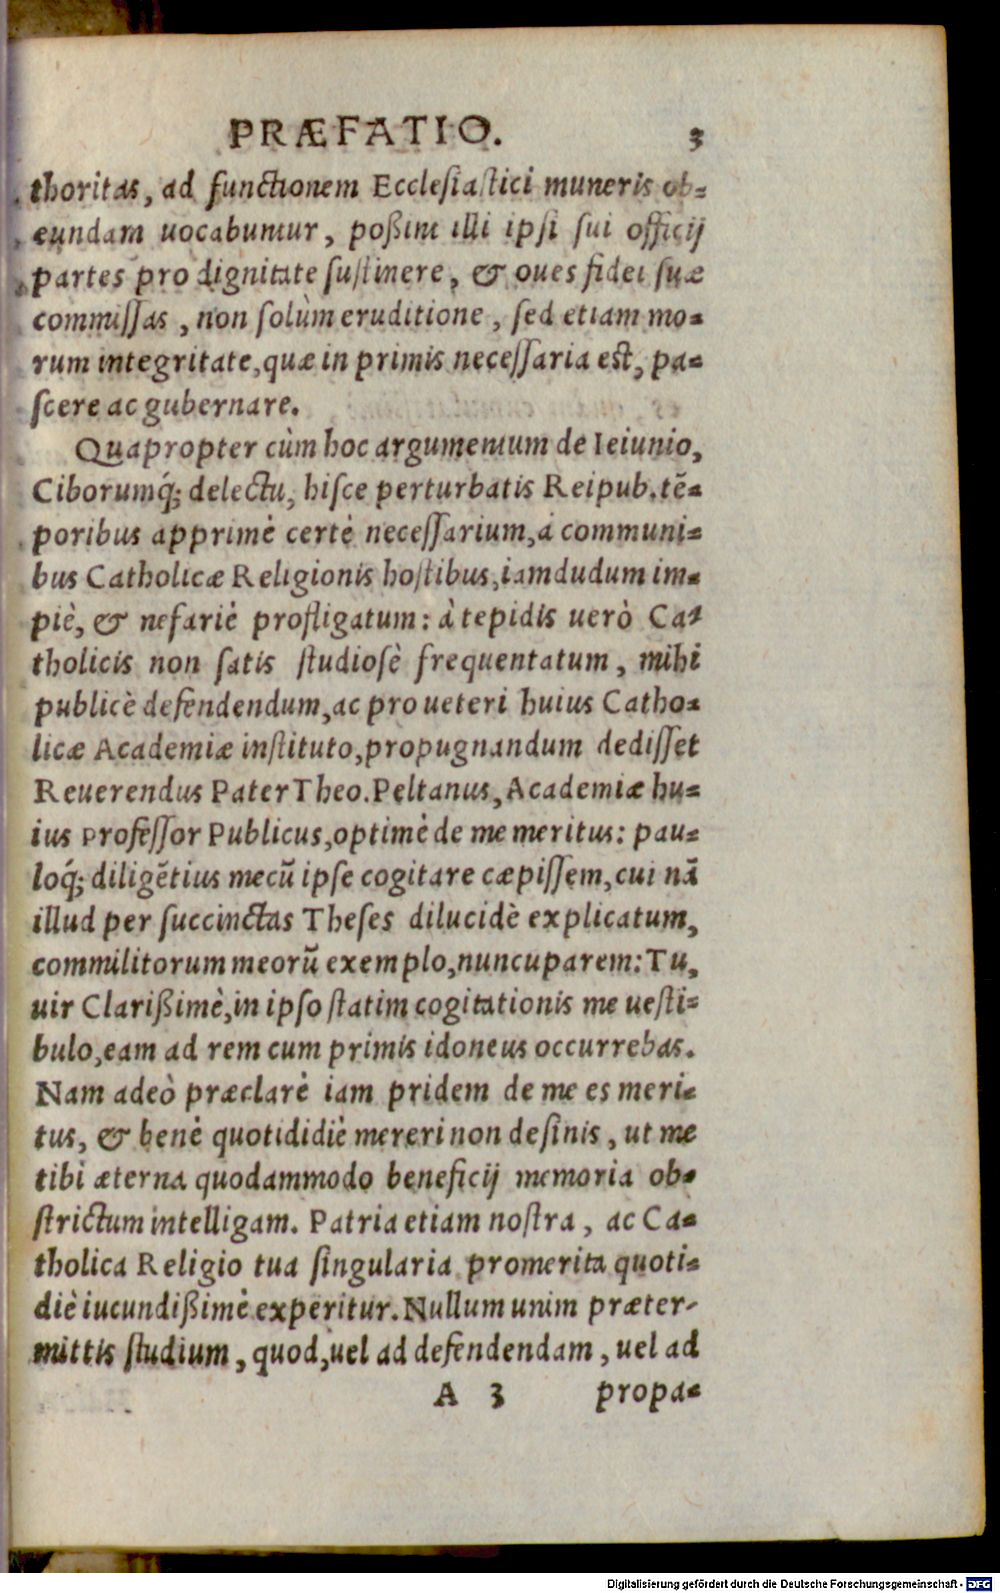 PRÆFATIO. 3
thoritas, ad functionem Ecclesiastici muneris ob-
eundam uocabuntur, poßint illi ipsi sui officij
partes pro dignitate sustinere, & oues fidei suæ
commissas, non solùm eruditione, sed etiam mo-
rum integritate, quæ in primis necessaria est, pa-
scere ac gubernare.
Quapropter cùm hoc argumentum de Ieiunio,
Ciborumq́; delectu, hisce perturbatis Reipub. tẽ-
poribus apprimè certè necessarium, à communi-
bus Catholicæ Religionis hostibus, iamdudum im-
piè, & nefariè profligatum: à tepidis uerò Ca-
tholicis non satis studiosè frequentatum, mihi
publicè defendendum, ac pro ueteri huius Catho-
licæ Academiæ instituto, propugnandum dedisset
Reuerendus Pater Theo. Peltanus, Academiæ hu-
ius Professor Publicus, optimè de me meritus: pau-
loq́; diligẽtius mecũ ipse cogitare cæpissem, cui nã
illud per succinctas Theses dilucidè explicatum,
commilitorum meorũ exemplo, nuncuparem: Tu,
uir Clarißimè, in ipso statim cogitationis me uesti-
bulo, eam ad rem cum primis idoneus occurrebas.
Nam adeò præclarè iam pridem de me es meri-
tus, & benè quotididiè mereri non desinis, ut me
tibi æterna quodammodo beneficij memoria ob-
strictum intelligam. Patria etiam nostra, ac Ca-
tholica Religio tua singularia promerita quoti-
diè iucundißimè experitur. Nullum unim præter-
mittis studium, quod, uel ad defendendam, uel ad
A 3 propa-
Digitalisierung gefördert durch die Deutsche Forschungsgemeinschaft - DFG